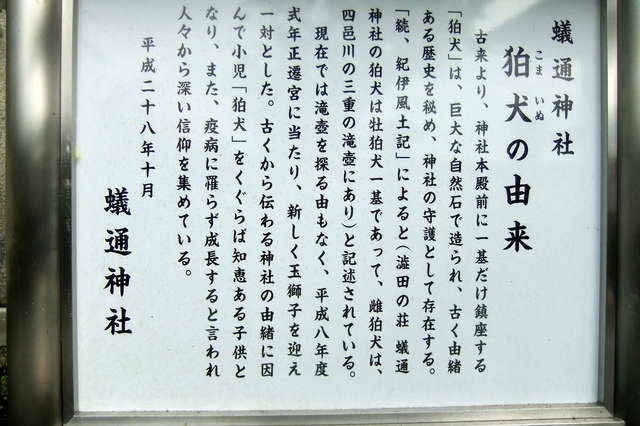 蟻通神社
狛犬の由来
こま いぬ
古来より、神社本殿前に一基だけ鎮座する
「狛犬」は、巨大な自然石で造られ、古く由緒
ある歴史を秘め、神社の守護として存在する。
「続、紀伊風土記」によると(澁田の荘 蟻通
神社の狛犬は牡狛犬一基であって、雌狛犬は、
四邑川の三重の滝壺にあり)と記述されている。
現在では滝壺を探る由もなく、平成八年度
式年正遷宮に当たり、新しく玉獅子を迎え
一対とした。古くから伝わる神社の由緒に因
んで小児「狛犬」をくぐらば知恵ある子供と
なり、また、疫病に罹らず成長すると言われ
人々から深い信仰を集めている。
平成二十八年十月
蟻通神社